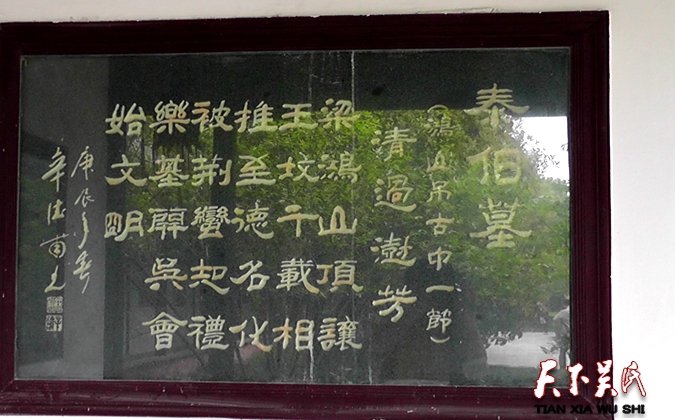 泰伯墓
(鴻山吊古中一節)
清過澍芳
梁鴻山頂讓
王坟千載相
推至德名化
被荆蠻起禮
樂基開吳會
始文明
庚辰
天下吴氏
TIAN XIA WU SHI